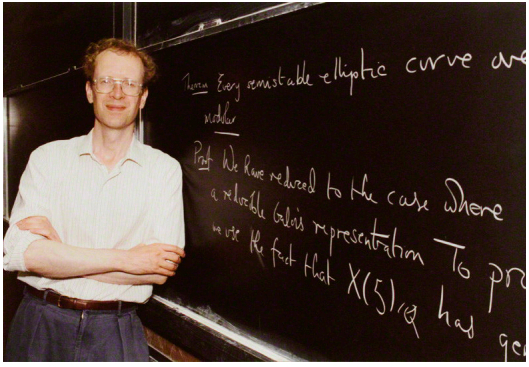 Theorem Every semistable elliptic curve ove
modular
Proof We have reduced to the case where
a reducible Galois representation To pro
we use the fact that X(5)/Q has gen